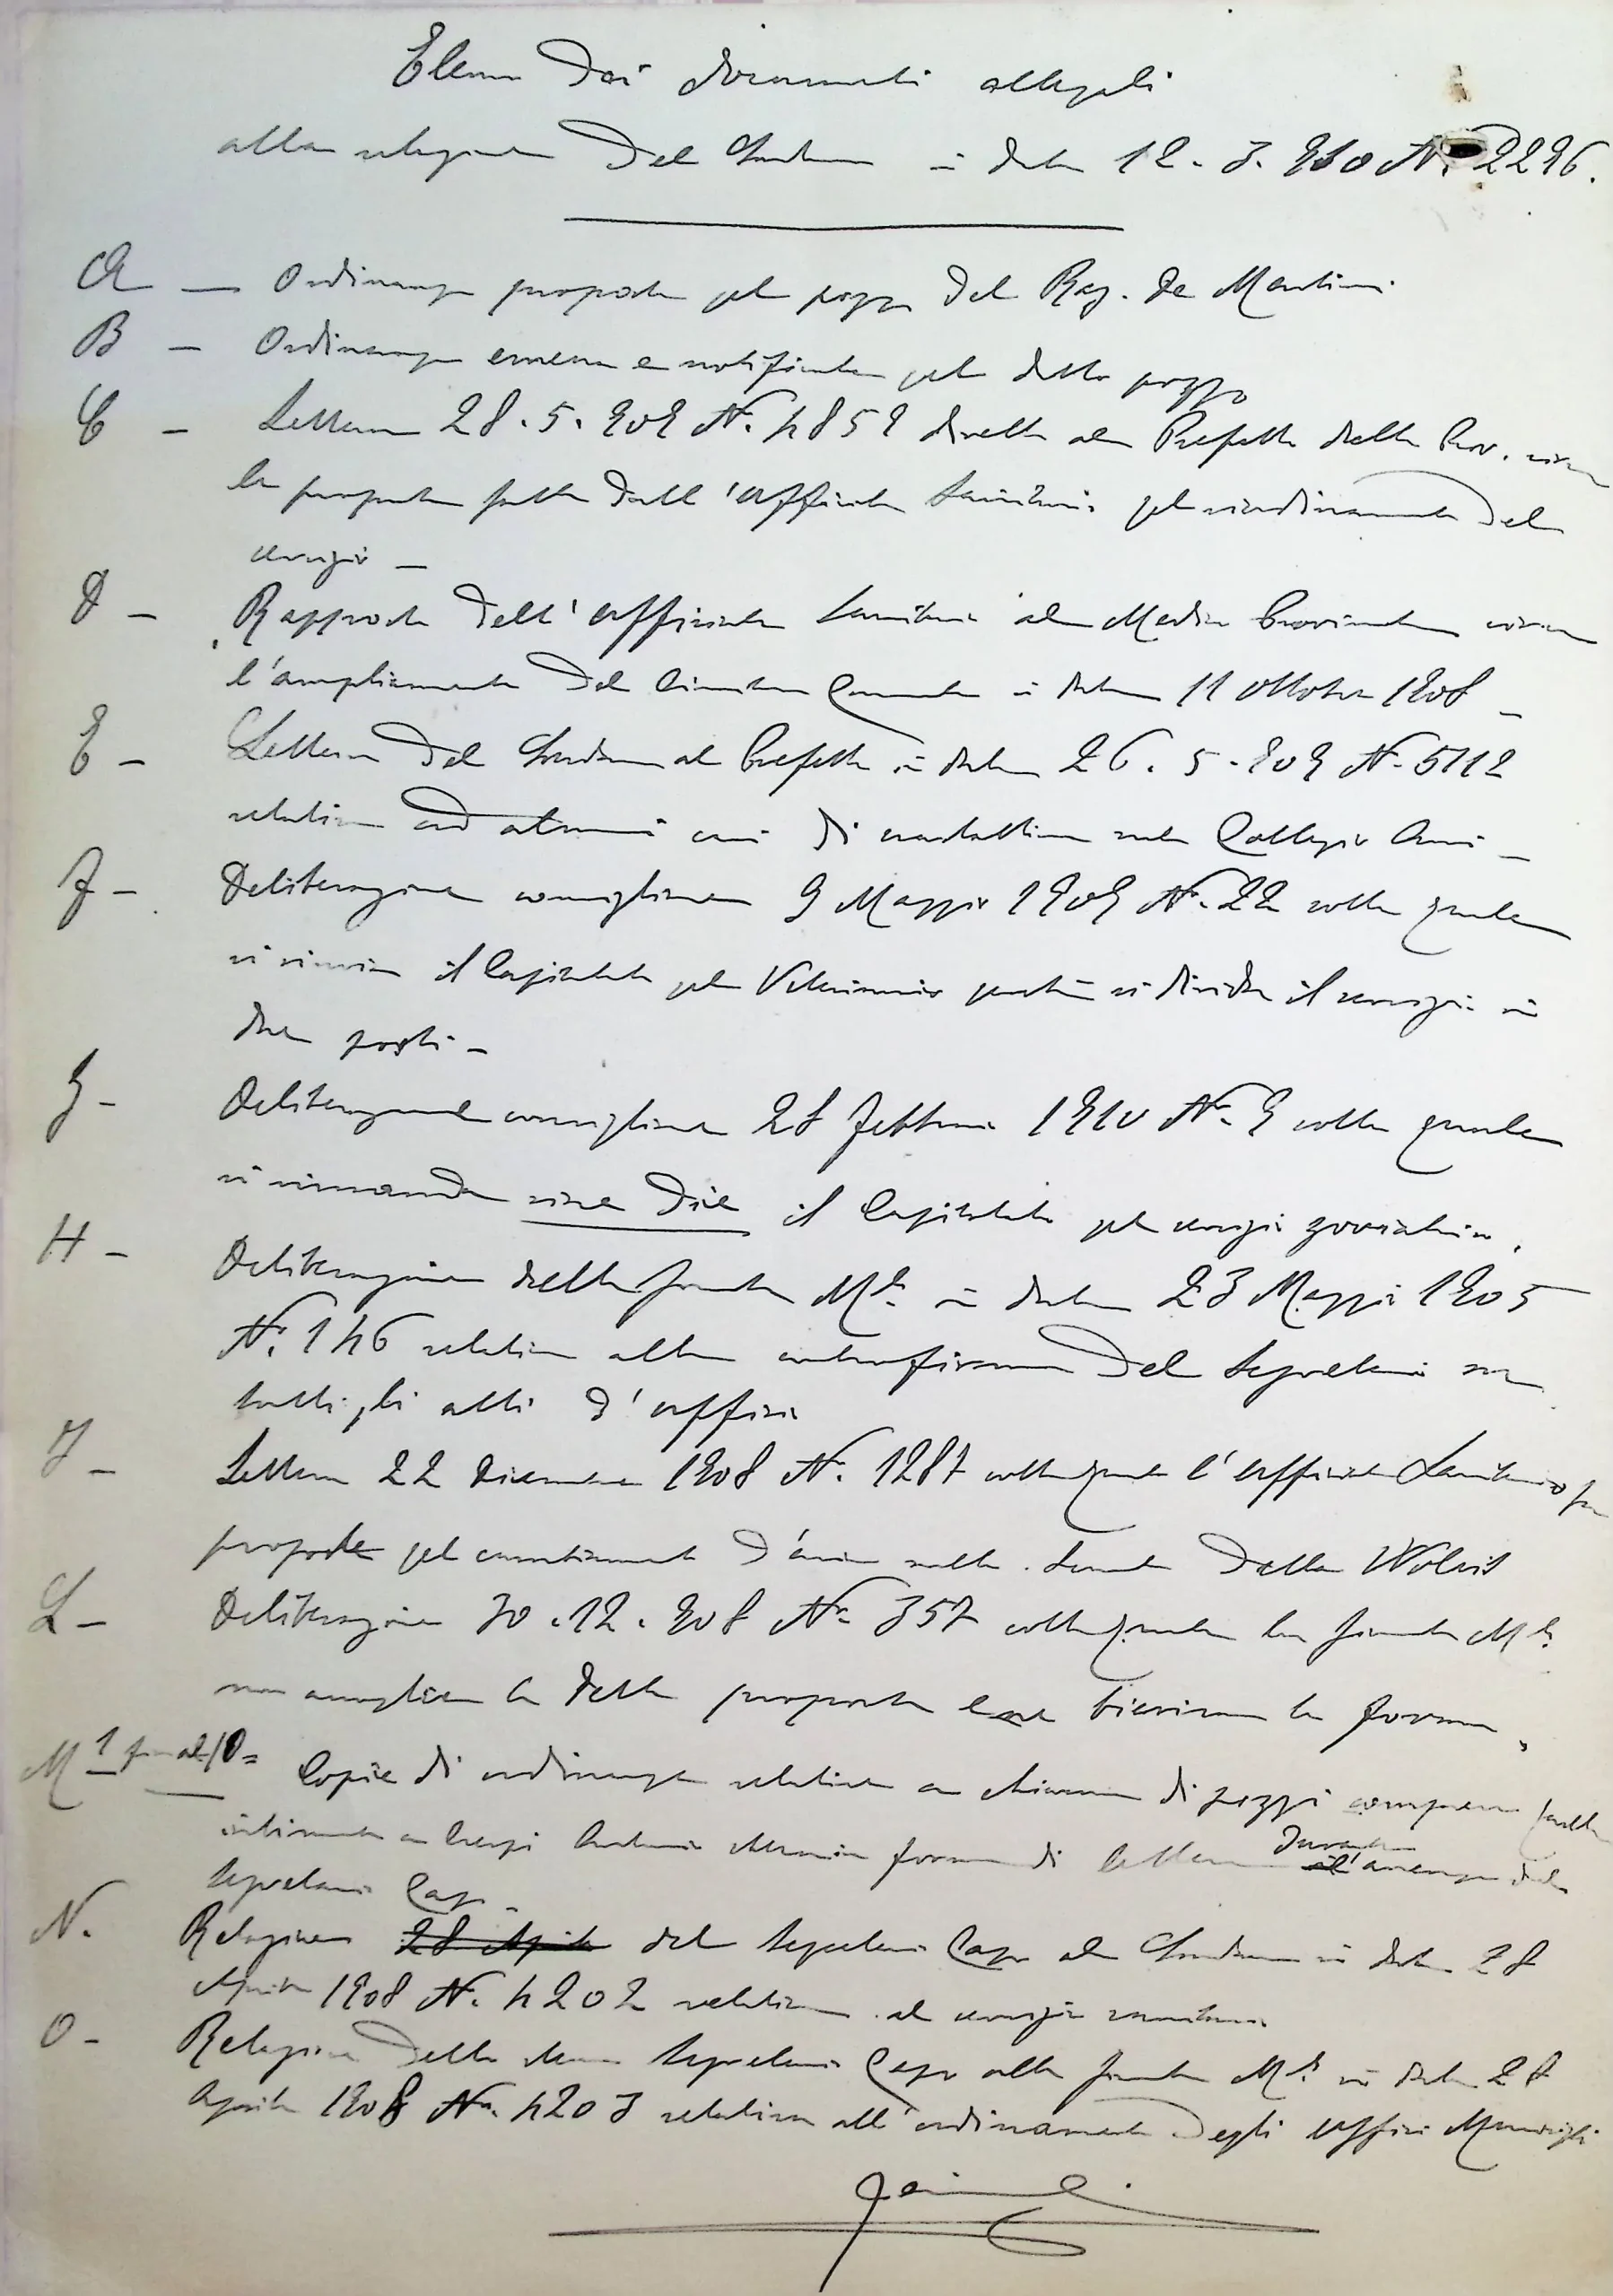 Elenco dei documenti allegati
alla relazione del Sindaco in data 12.3.910 N. 2296.
A — Ordinanza proposta pel pozzo del Rag. De Martini.
B — Ordinanza emessa e notificata pel detto pozzo
C — Lettera 28.5.909 N. 4859 diretta al Prefetto della Prov. circa
la proposta fatta dall'Ufficiale Sanitario pel riordinamento del
servizio —
D — Rapporto dell'Ufficiale Sanitario al Medico Provinciale circa
l'ampliamento del Cimitero in data 11 Ottobre 1908 —
E — Lettera del Sindaco al Prefetto in data 26.5.909 N. 5112
relativa ad alcuni casi di scarlattina nel Collegio —
F — Deliberazione consigliare 9 Maggio 1909 N. 22 colla quale
si rinvia il Capitolato pel Veterinario perchè si divida il servizio in
due posti —
G — Deliberazione consigliare 28 Febbraio 1910 N. 9 colla quale
si rimanda sine die il Capitolato pel servizio zooiatrico.
H — Deliberazione della Giunta Mle. in data 23 Maggio 1905
N. 146 relativa alla controfirma del Segretario su
tutti gli atti d'ufficio
I — Lettera 22 Dicembre 1908 N. 1287 colla quale l'Ufficiale Sanitario fa
proposte pel cambiamento d'aria nella Scuola della
L — Deliberazione 30.12.908 N. 357 colla quale la Giunta Mle.
non accoglie la detta proposta e ne la forma.
M 1 fino al 10 = Copie di ordinanze relative a chiusura di pozzi compresa quella
intimata a Crespi Antonio in forma di lettera durante l'assenza del
Segretario Capo —
N. Relazione 28 Aprile del Segretario Capo al Sindaco in data 28
Aprile 1908 N. 4202 relativa al servizio sanitario.
O — Relazione dello stesso Segretario Capo alla Giunta Mle. in data 28
Aprile 1908 N. 4203 relativa all'ordinamento degli Uffici Municipali